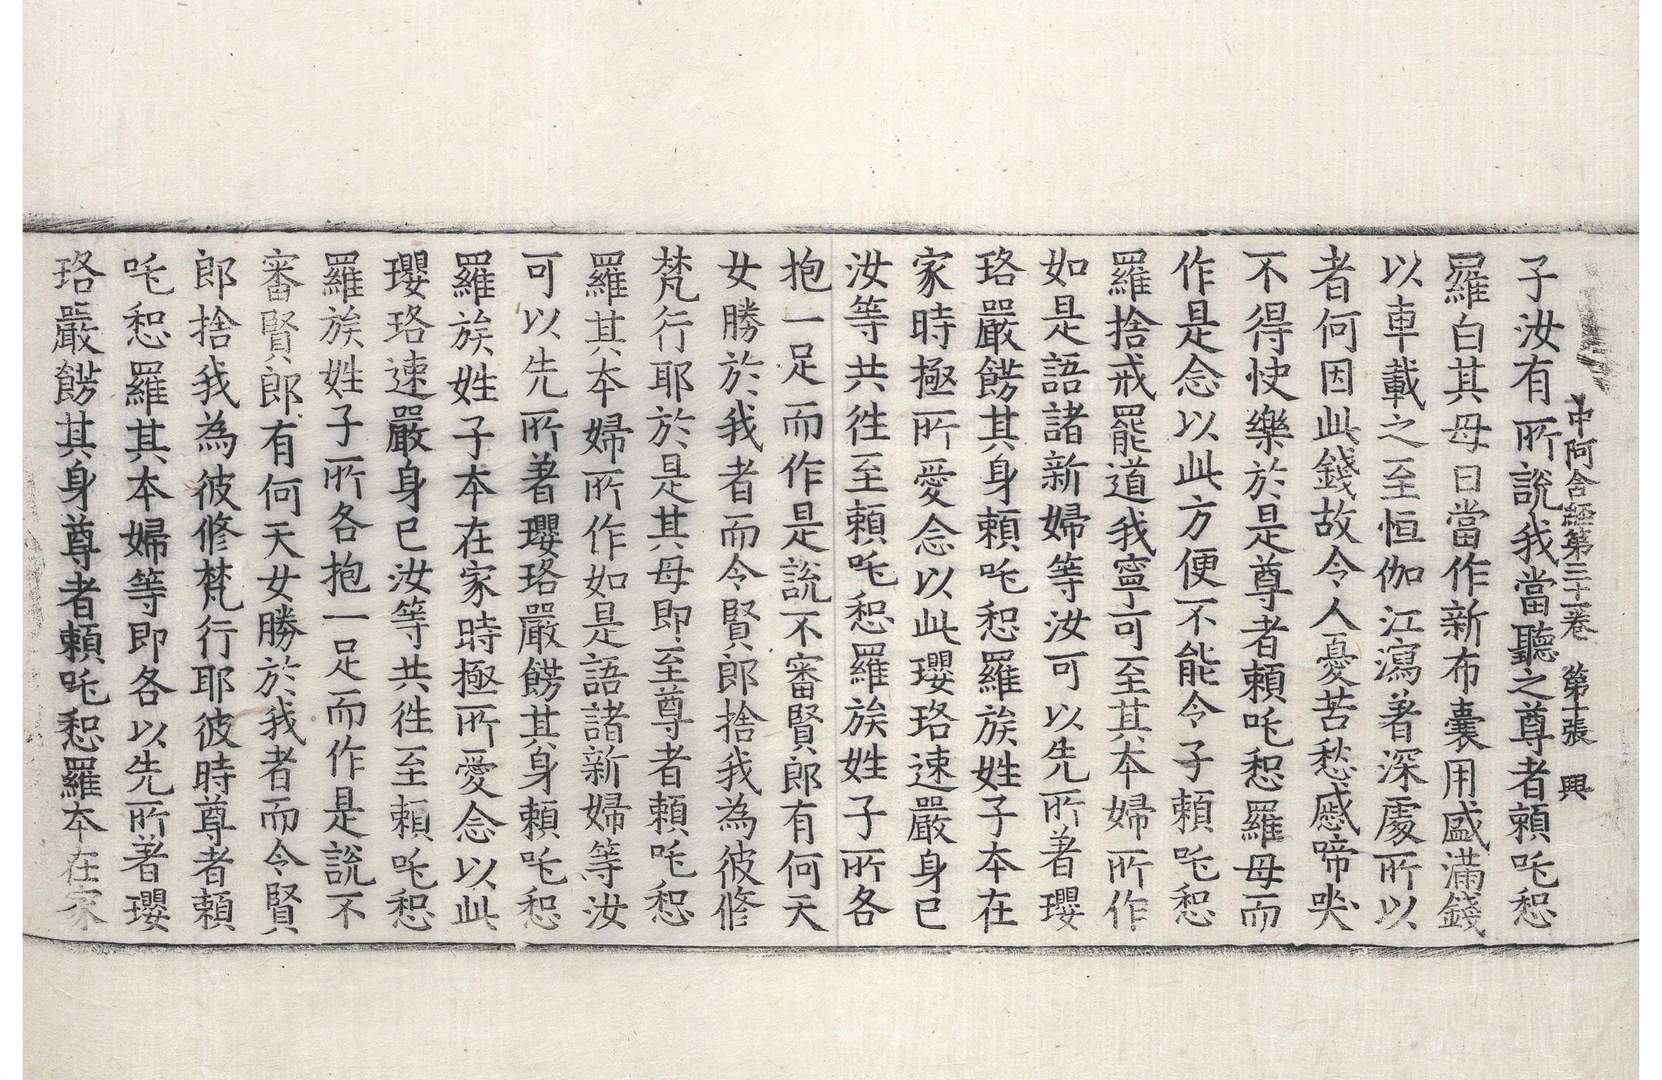 中阿含經第三十一卷　第十張　興
子汝有所說我當聽之尊者頼吒惒
羅白其母曰當作新布囊用盛滿錢
以車載之至恒伽江瀉著深處所以
者何因此錢故令人憂苦愁慼啼哭
不得快樂於是尊者頼吒惒羅母而
作是念以此方便不能令子頼吒惒
羅捨戒罷道我寧可至其本婦所作
如是語諸新婦等汝可以先所著瓔
珞嚴餝其身頼吒惒羅族姓子本在
家時極所愛念以此瓔珞速嚴身已
汝等共徃至頼吒惒羅族姓子所各
抱一足而作是說不審賢郎有何天
女勝於我者而令賢郎捨我為彼修
梵行耶於是其母即至尊者頼吒惒
羅其本婦所作如是語諸新婦等汝
可以先所著瓔珞嚴餝其身頼吒惒
羅族姓子本在家時極所愛念以此
瓔珞速嚴身已汝等共徃至頼吒惒
羅族姓子所各抱一足而作是說不
審賢郎有何天女勝於我者而令賢
郎捨我為彼修梵行耶彼時尊者頼
吒惒羅其本婦等即各以先所著瓔
珞嚴餝其身尊者頼吒惒羅本在家